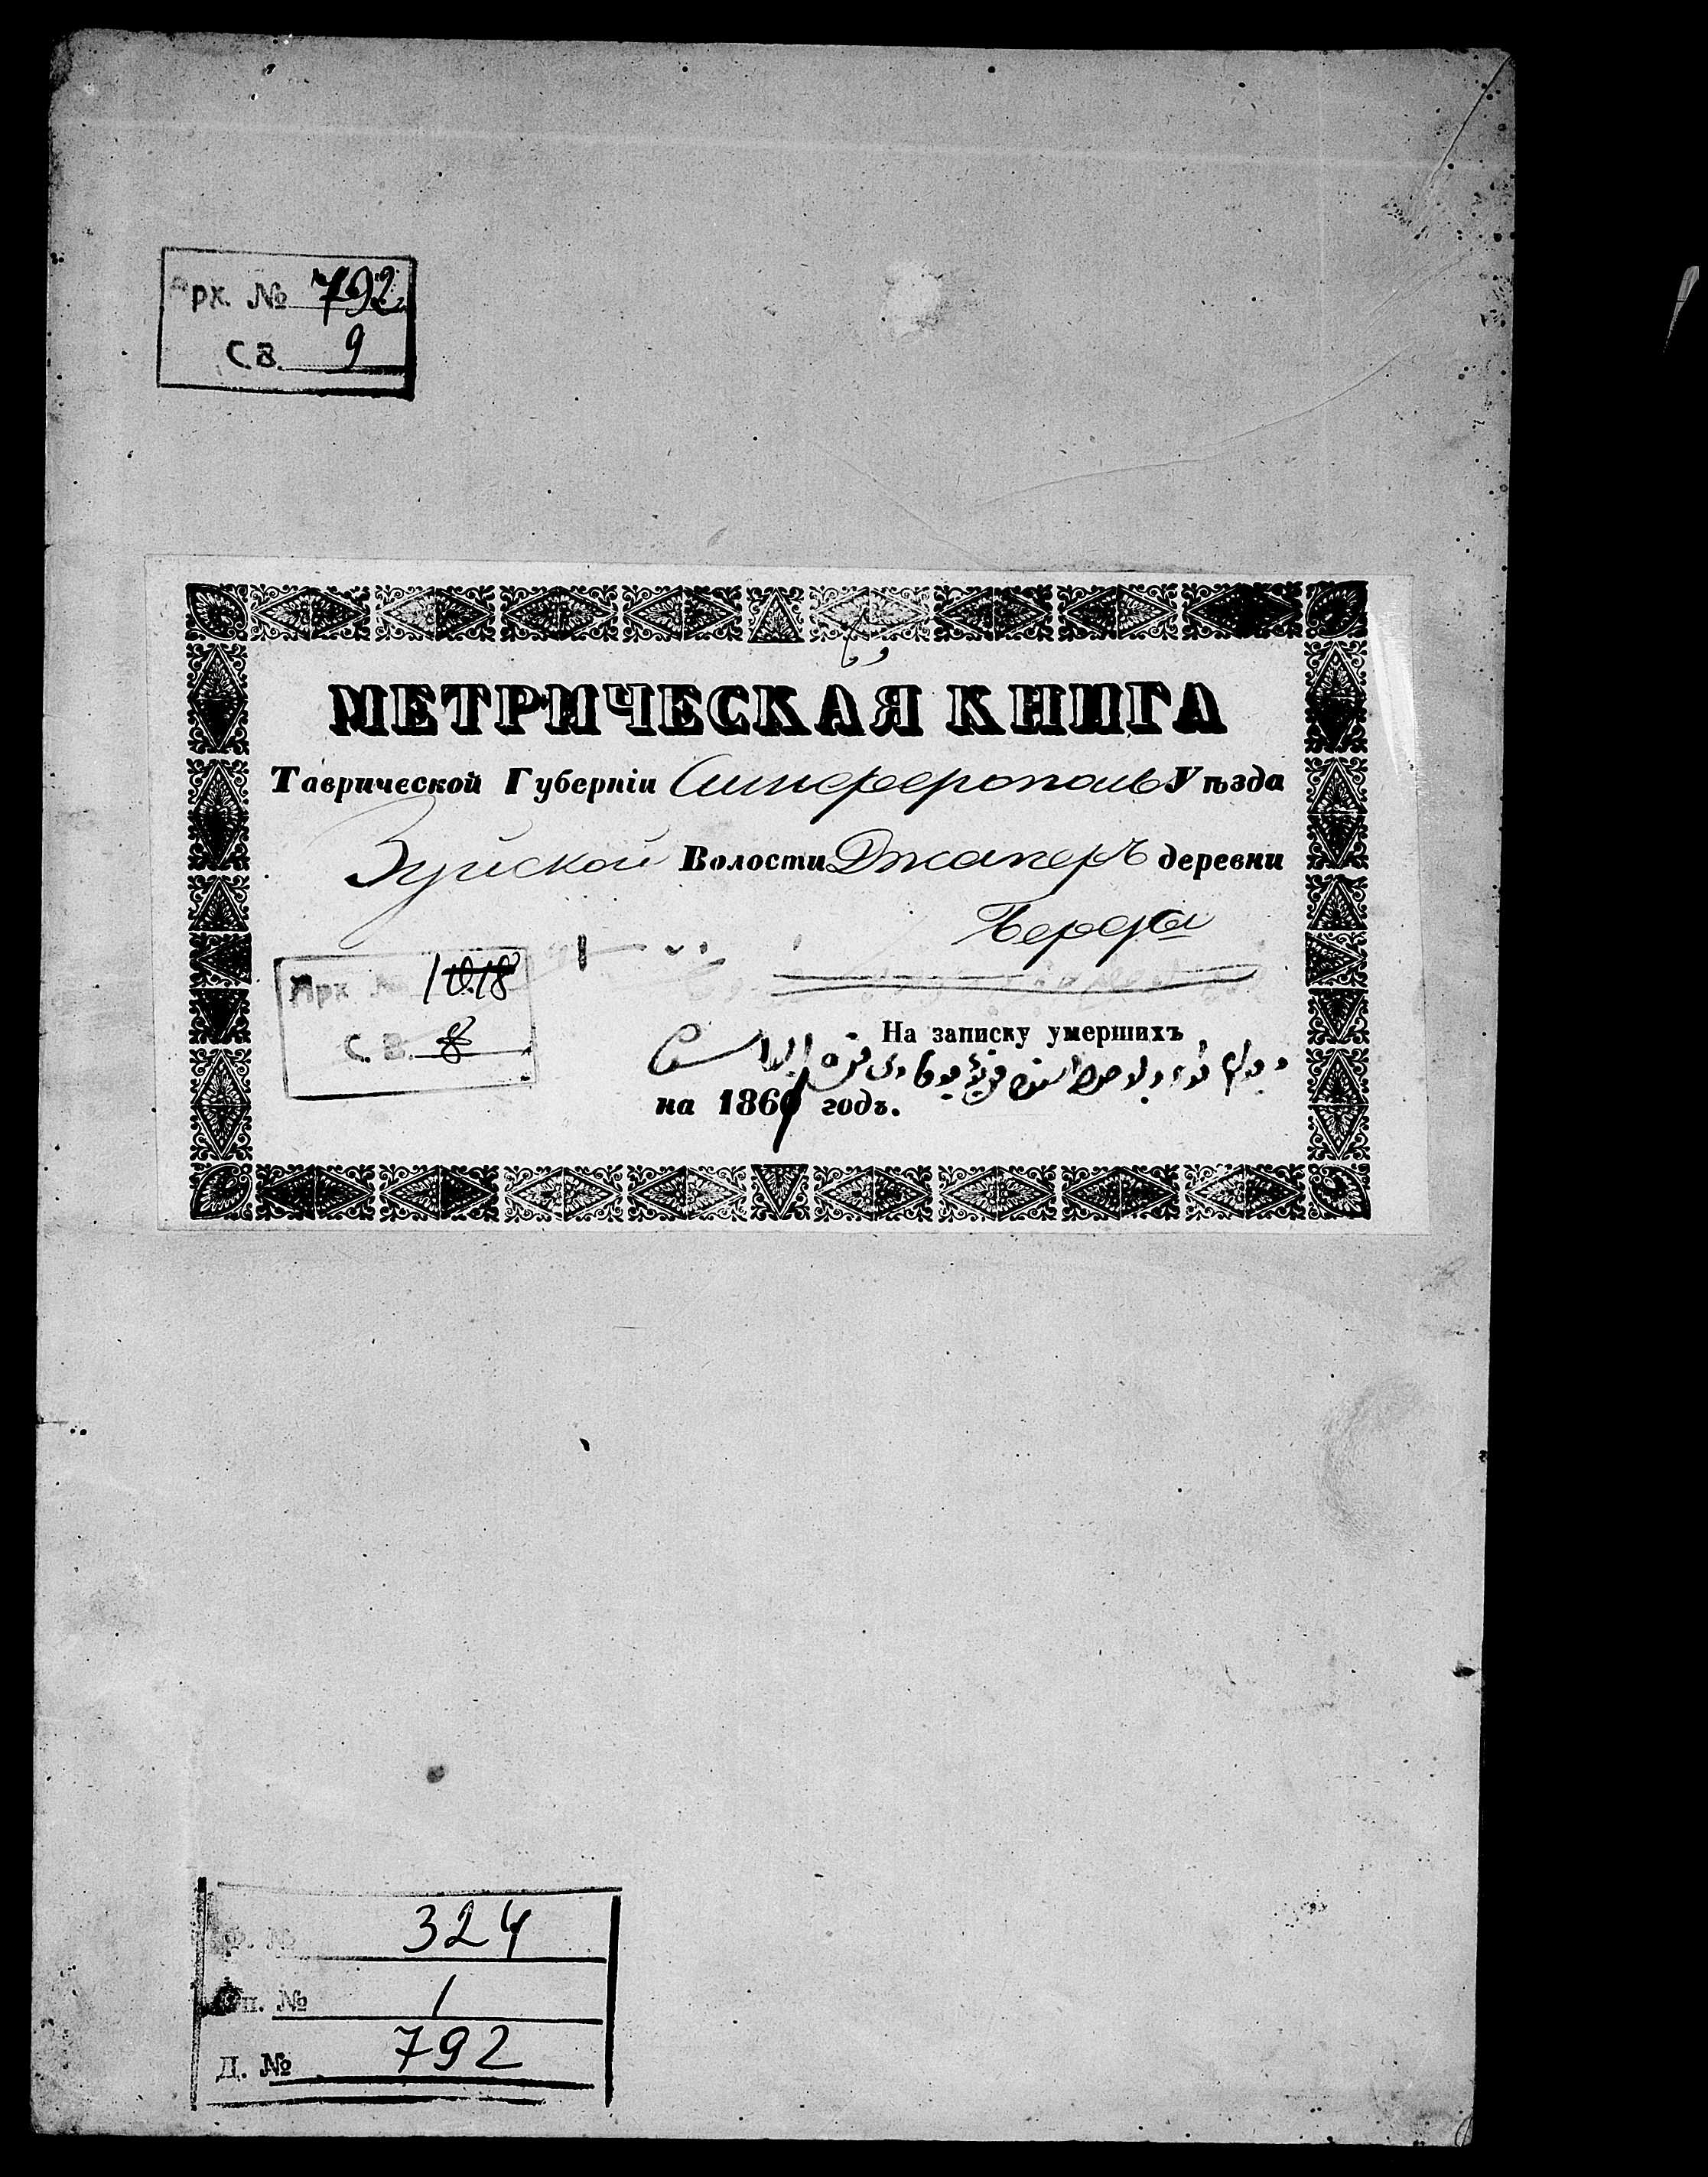 Арх. № 792
Св. 9
МЕТРИЧЕСКАЯ КНИГА
Таврической Губернiи Симферополь Уѣзда
Зуйской Волости Джапаръ деревни
Берды
Арх № 1018
С. В. 8
На записку умершихъ
на 1861 годъ.
Ф. № 324
Оп. № 1
Д. № 792